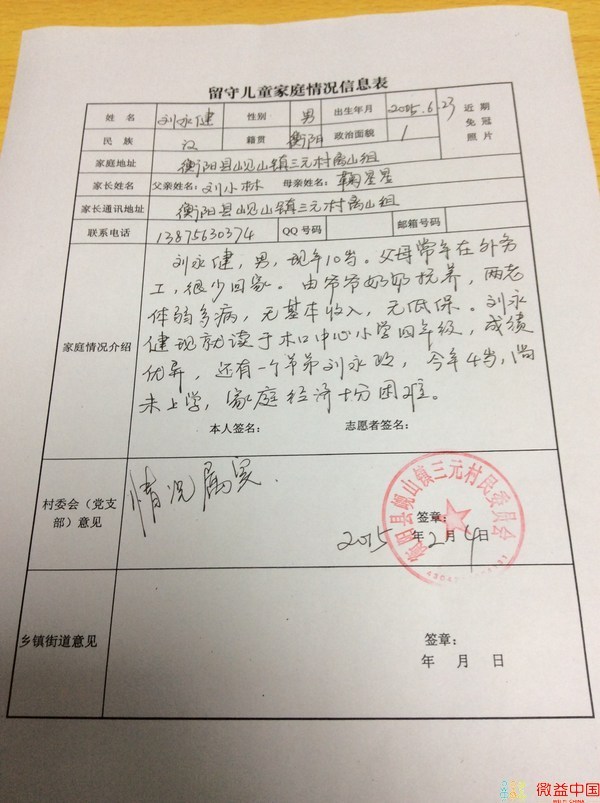 留守儿童家庭情况信息表
姓 名 刘永健 性别 男 出生年月 2005.6.23 近期免冠照片
民 族 汉 籍贯 衡阳 政治面貌 /
家庭地址 衡阳县岘山镇三元村 山组
家长姓名 父亲姓名：刘小林 母亲姓名：鞠星星
家长通讯地址 衡阳县岘山镇三元村 山组
联系电话 13875630374 QQ号码 邮箱号码
家庭情况介绍
刘永健，男，现年10岁。父母常年在外务
工，很少回家。由爷爷奶奶抚养，两老
体弱多病，无基本收入，无低保。刘永
健现就读于木口中心小学四年级，成绩
优异，还有一个弟弟刘永 ，今年4岁，尚
未上学，家庭经济十分困难。
本人签名： 志愿者签名：
村委会（党支部）意见
情况属实.
衡阳县岘山镇三元村民委员会
签章：
2015年2月4日
乡镇街道意见
签章：
年 月 日
微益中国